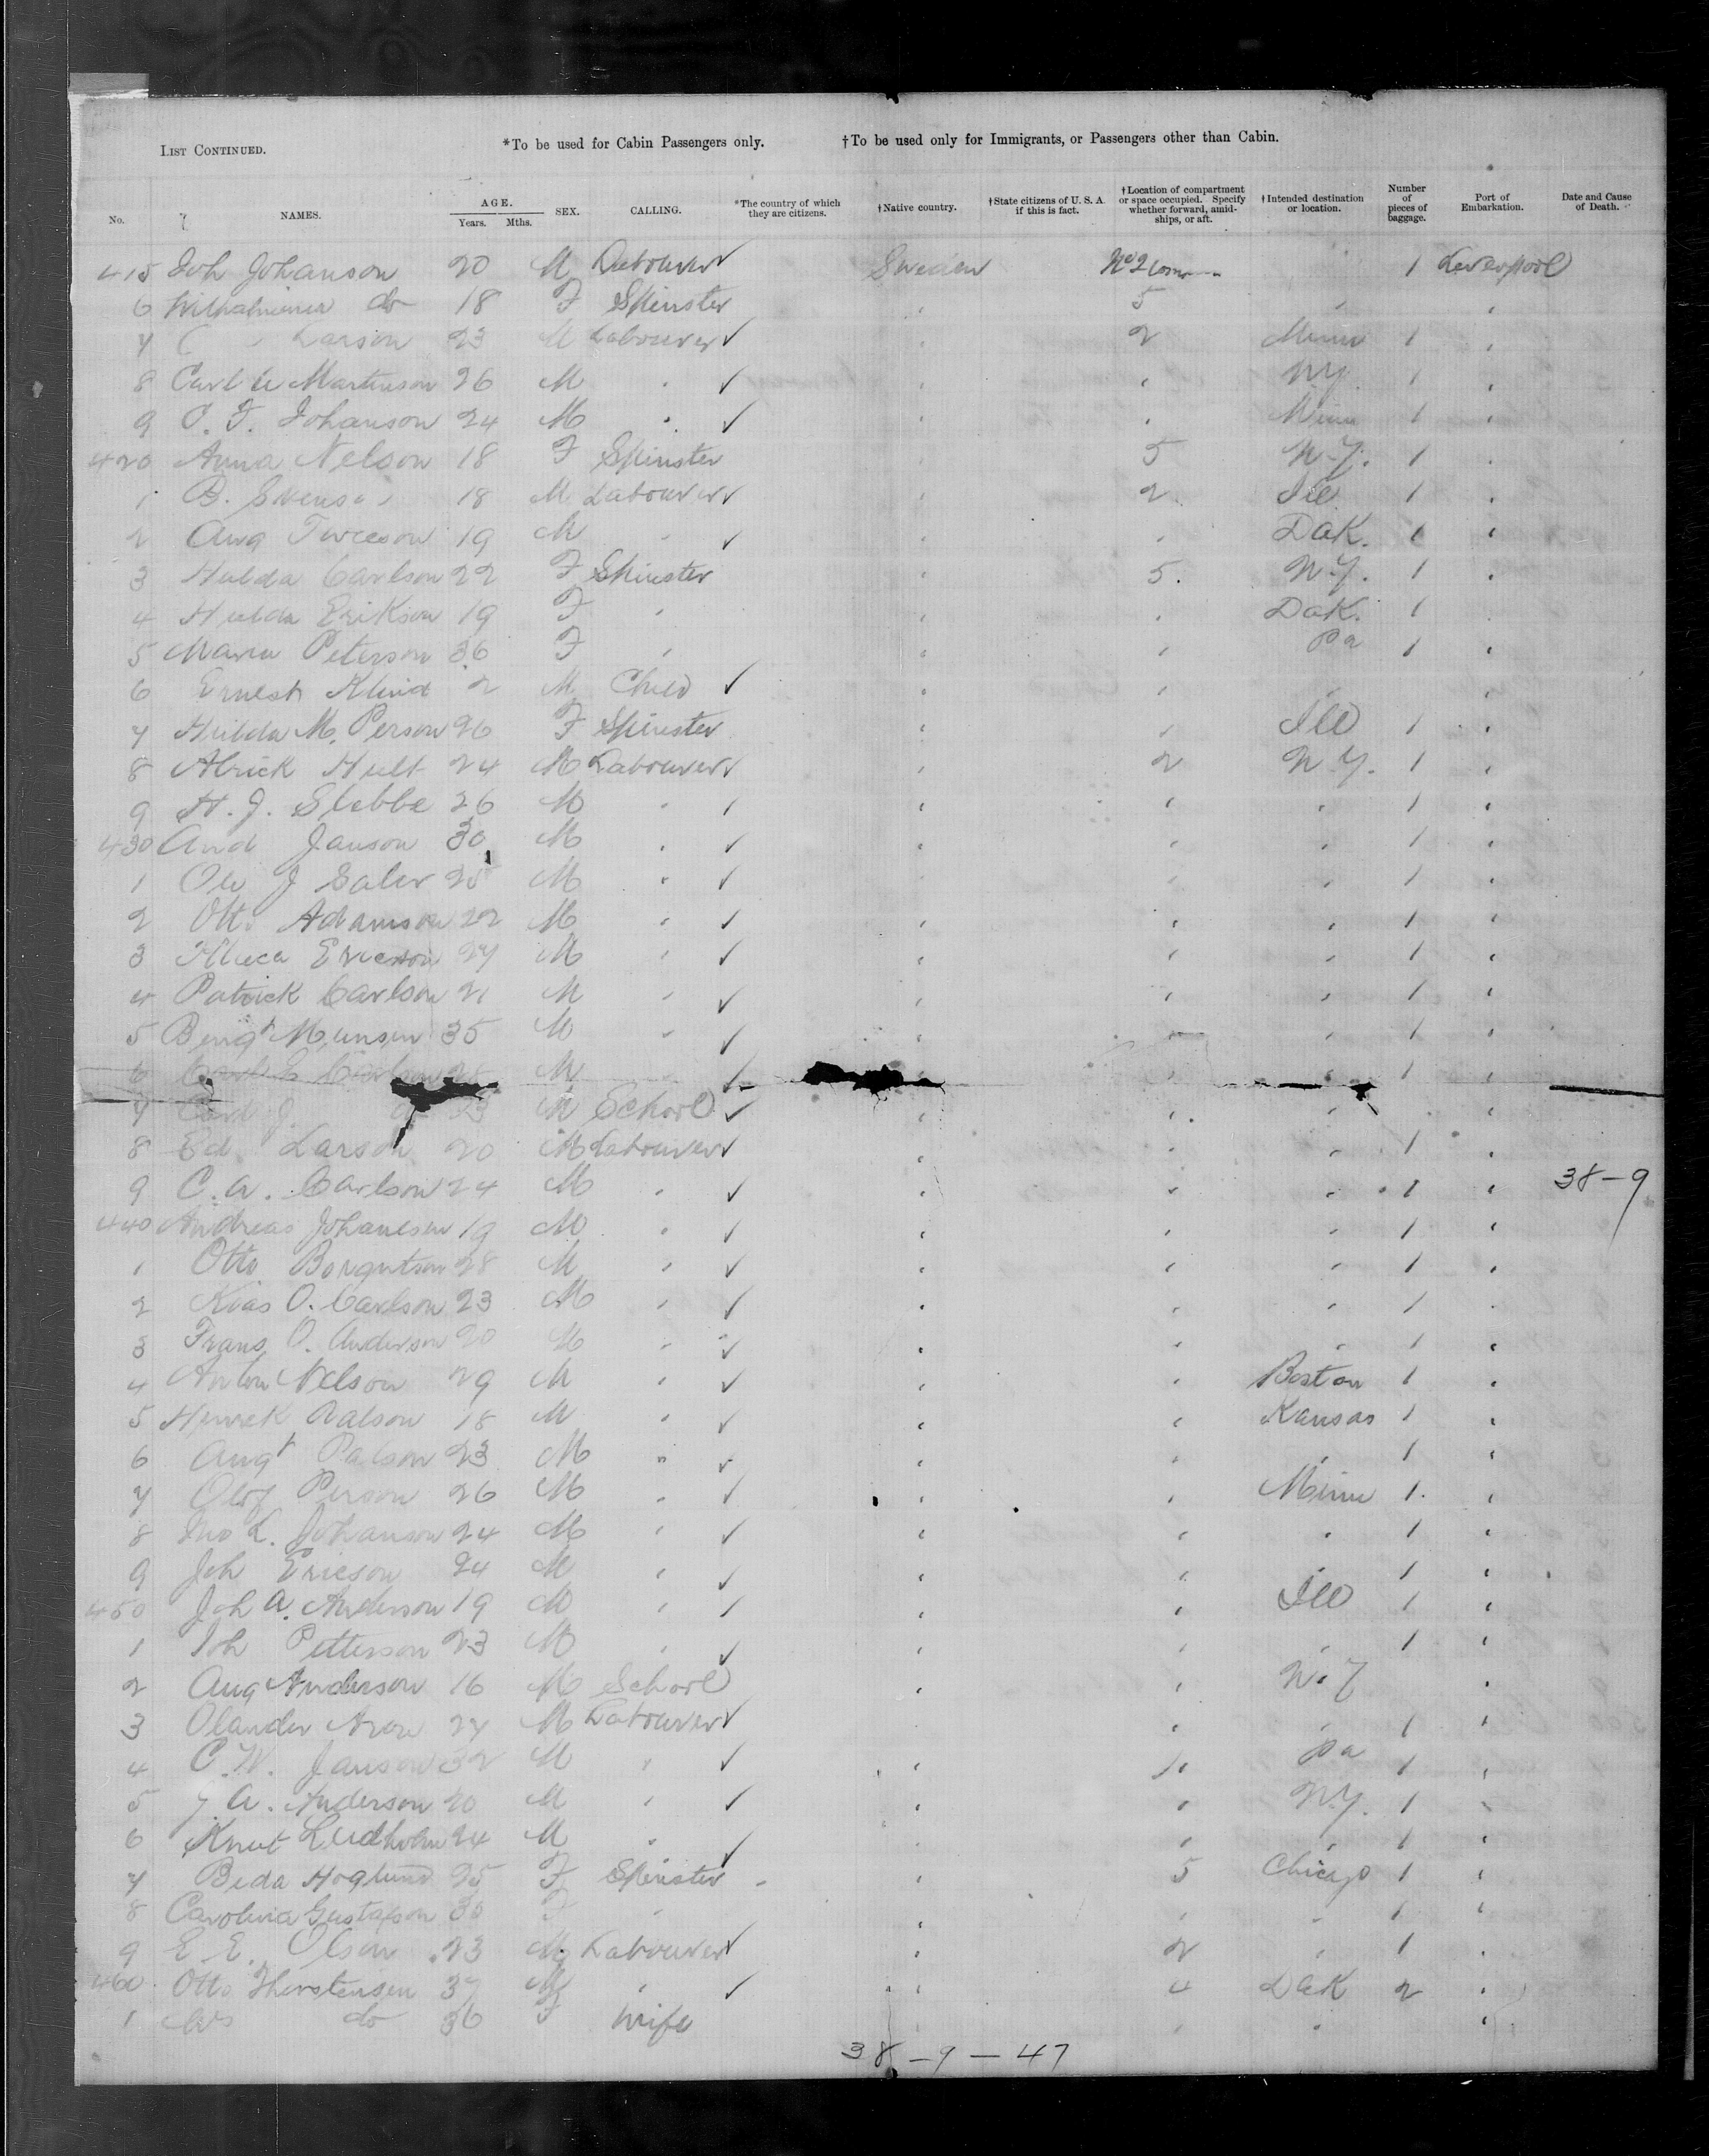 LIST CONTINUED. *To be used for Cabin Passengers only. †To be used only for Immigrants, or Passengers other than Cabin.
No. NAMES. AGE. Years. Mths. SEX. CALLING. *The country of which they are citizens. †Native country. †State citizens of U. S. A. if this is fact. †Location of compartment or space occupied. Specify whether forward, amidships, or aft. †Intended destination or location. Number of pieces of baggage. Port of Embarkation. Date and Cause of Death.
415 Joh Johanson 20 M Labourer ✓ Sweden No 2 1 Liverpool
6 Wilhalmina do 18 F Spinster " 5 " "
7 Larson 23 M Labourer ✓ " 2 Minn 1 "
8 Carl Martinson 26 M " ✓ " " N.Y. 1 "
9 C. F. Johanson 24 M " ✓ " " Minn 1 "
420 Anna Nelson 18 F Spinster " 5 N.Y. 1 "
1 B. 18 M Labourer ✓ " 2 Ill 1 "
2 Aug 19 M " ✓ " " Dak. 1 "
3 Hulda Carlson 22 F Spinster " 5. N.Y. 1 "
4 Hulda Erikson 19 F " " " Dak. 1
5 Maria Peterson 36 F " " " Pa 1 "
6 Ernest 2 M Child ✓ " " " "
7 Hulda M. Person 26 F Spinster " " Ill 1 "
8 Alrick Hult 24 M Labourer ✓ " 2 N.Y. 1 "
9 H. J. Stebbe 26 M " ✓ " " " 1 "
430 And Janson 30 M " ✓ " " 1 "
1 J 25 M " ✓ " " 1 "
2 Otto Adamson 22 M " ✓ " " " 1 "
3 Ericson 27 M " ✓ " " " 1 "
4 Patrick Carlson 21 M " ✓ " " " 1 "
5 Bengt Munson 35 M " ✓ " " 1 "
6 M ✓ " " " 1 "
7 J. 23 M School ✓ " " " "
8 Ed Larson 20 M Labourer ✓ " " " 1 "
9 C. A. Carlson 24 M " ✓ " " " 1 " 38-9
440 Andreas Johaneson 19 M " ✓ " " " 1 "
1 Otto 28 M " ✓ " " " 1 "
2 O. Carlson 23 M " ✓ " " " 1 "
3 Frans O. Anderson 20 M " ✓ " " " 1 "
4 Anton Nelson 29 M " ✓ " " Boston 1 "
5 18 M " ✓ " " Kansas 1 "
6 Augt Palson 23 M " ✓ " " " 1 "
7 Olof Person 26 M " ✓ " " Minn 1 "
8 L. Johanson 24 M " ✓ " " " 1 "
9 Joh Ericson 24 M " ✓ " " 1 "
450 Joh A. Anderson 19 M " ✓ " " Ill 1 "
1 Joh Petterson 23 M " ✓ " " " 1 "
2 Aug Anderson 16 M School " " N.Y "
3 Olander 24 M Labourer ✓ " " 1 "
4 C. W. Janson 32 M " ✓ " " Pa 1 "
5 J A. Anderson 20 M " ✓ " " N.Y. 1 "
6 Knut Lindholm 24 M " ✓ " " " 1 "
7 Beda Hoglund 25 F Spinster " 5 Chicago 1 "
8 Carolina Gustafson 30 F " " " " 1 "
9 E E. Olson 23 M Labourer ✓ " 2 " 1 "
460 Otto Thorstensen 37 M " ✓ " 4 Dak 2 "
1 Mrs do 36 F Wife " " "
38-9-47